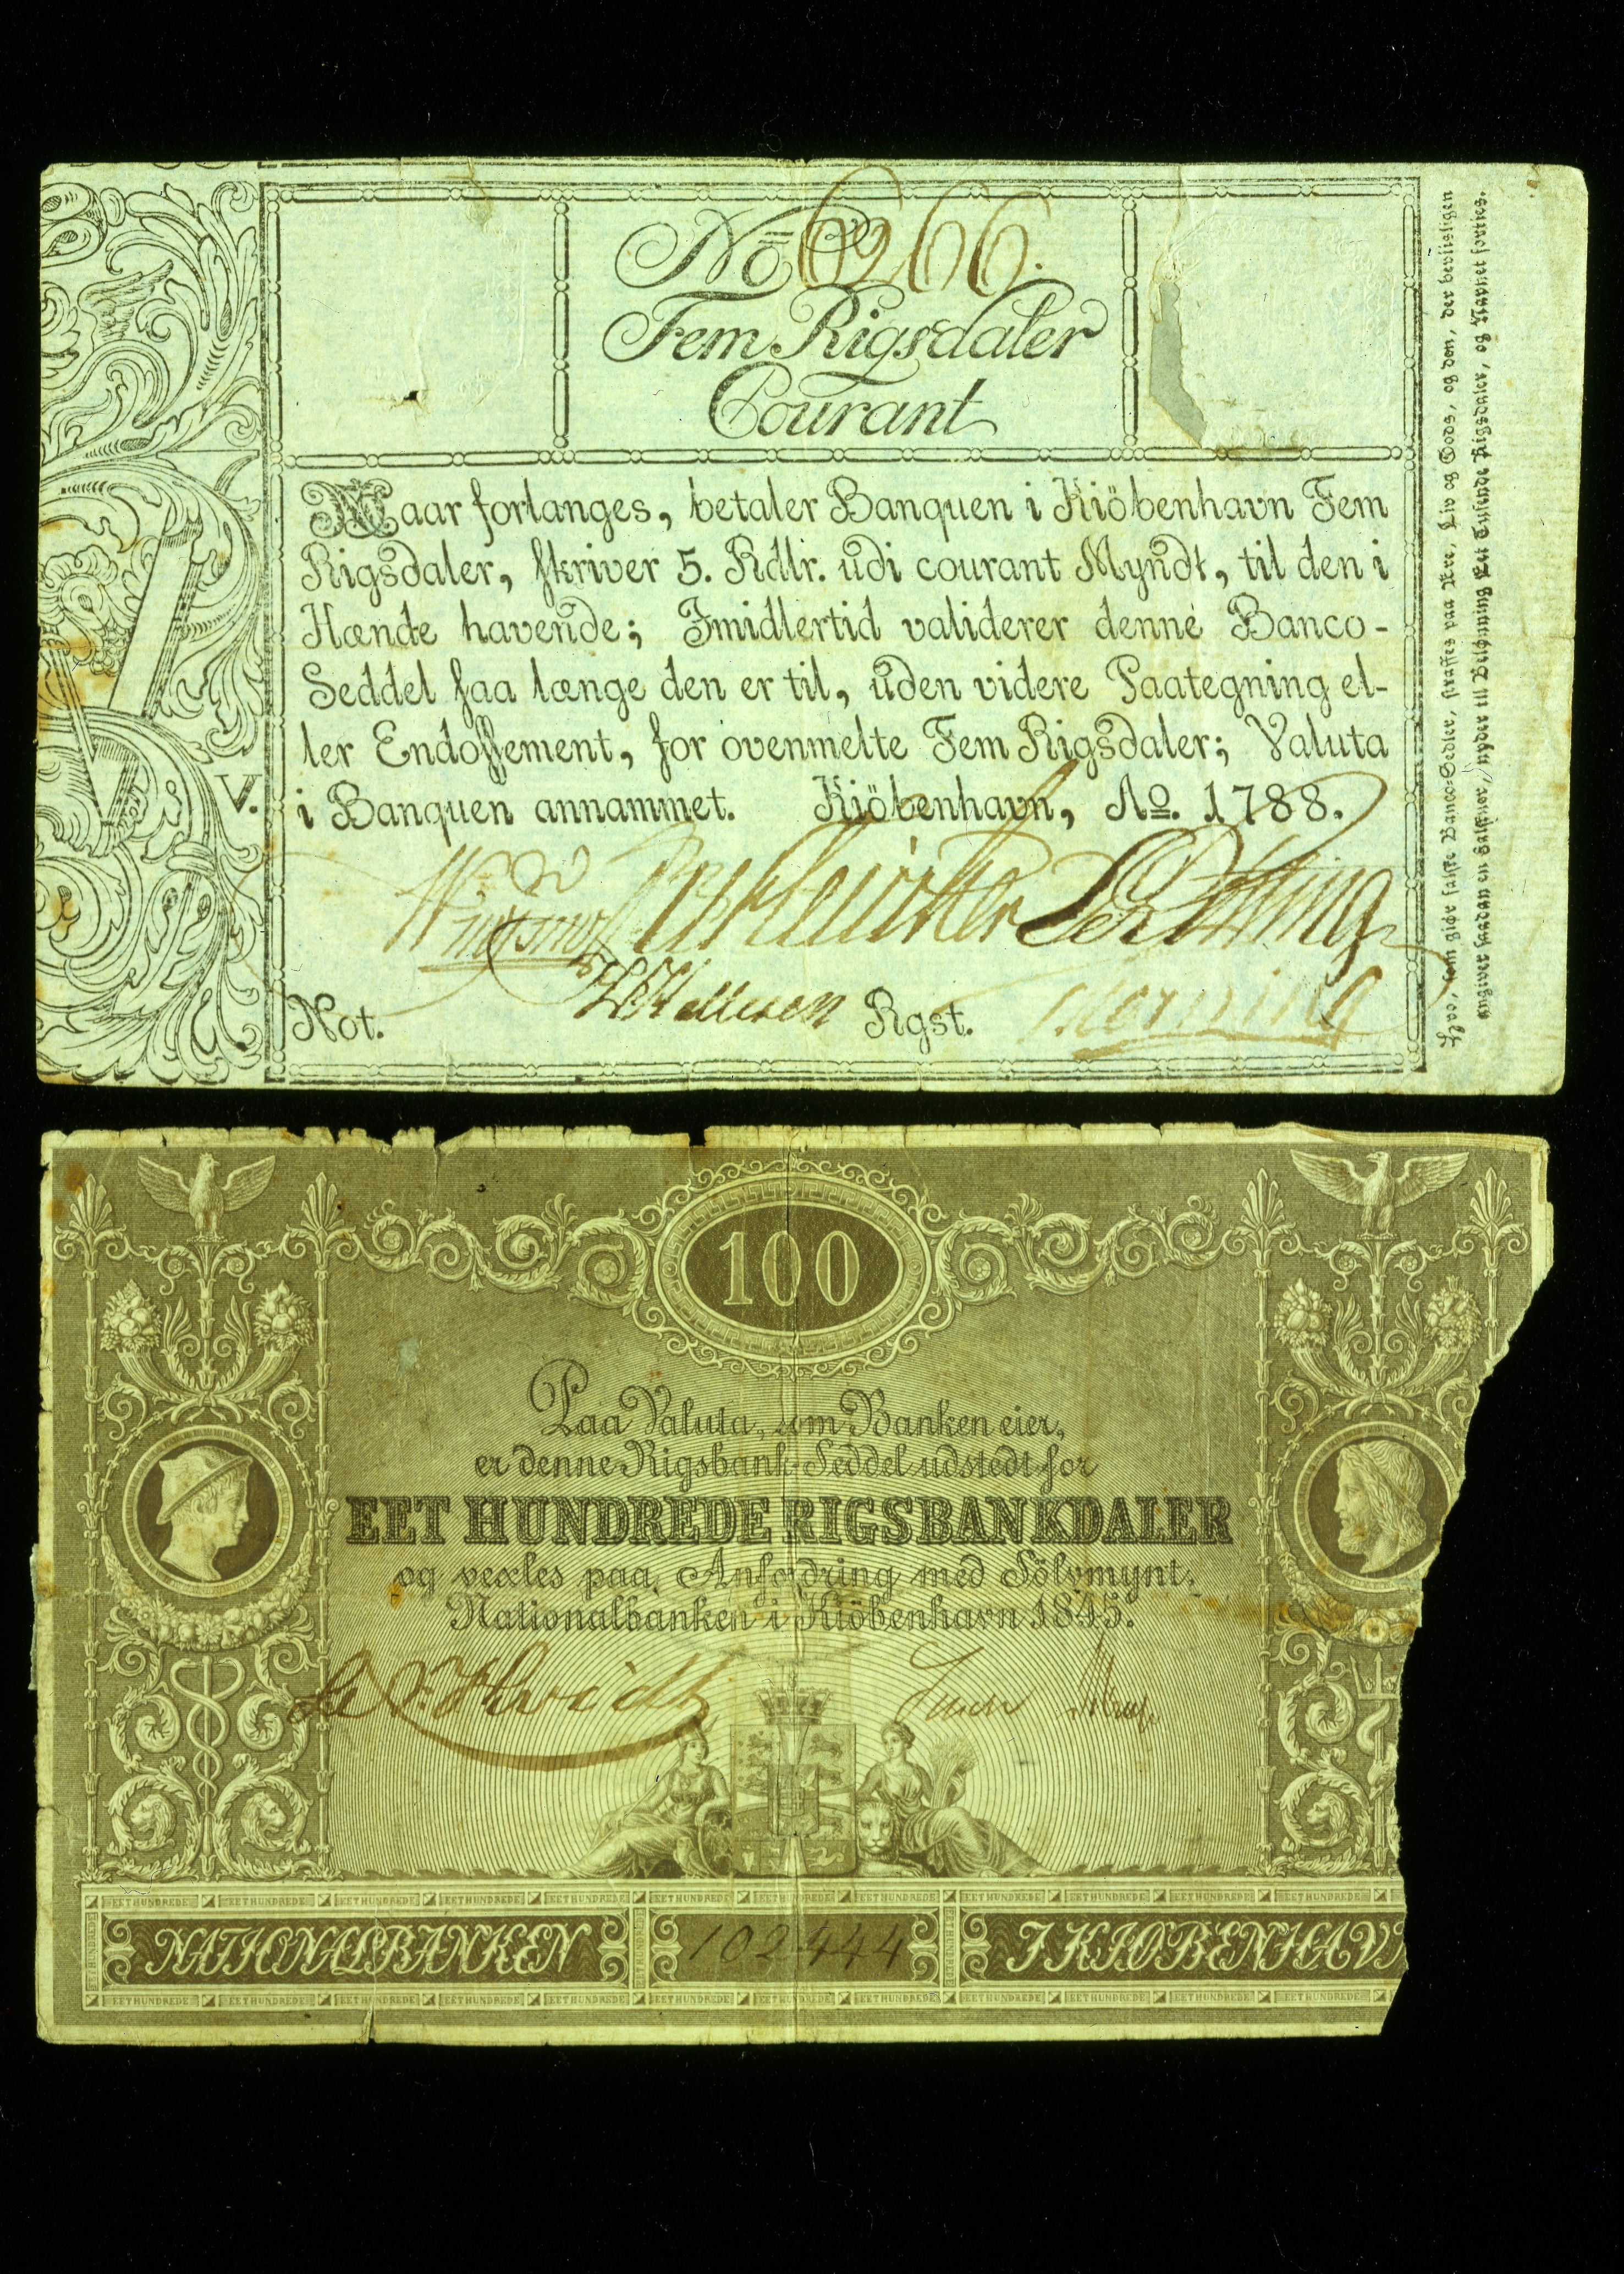 No 6266.
Fem Rigsdaler
Courant
Naar forlanges, betaler Banquen i Kiöbenhavn Fem
Rigsdaler, skriver 5. Rdlr. udi courant Myndt, til den i
Hænde havende; Imidlertid validerer denne Banco-
Seddel saa længe den er til, uden videre Paategning el-
ler Endossement, for ovenmelte Fem Rigsdaler; Valuta
i Banquen annammet. Kiöbenhavn, Ao. 1788.
V.
Not.
Rgst.
Hvo, som giør falske Banco-Sedler, straffes paa Ære, Liv og Gods, og den, der beviisligen
angiver saadan en under Rigsdaler, og Navnet forties.
100
Paa Valuta, som Banken eier,
er denne Rigsbank-Seddel udstedt for
EET HUNDREDE RIGSBANKDALER
og vexles paa Anfordring med Sölvmynt.
Nationalbanken i Kiöbenhavn 1845.
EETHUNDREDE EETHUNDREDE EETHUNDREDE EETHUNDREDE EETHUNDREDE EETHUNDREDE EETHUNDREDE EETHUNDREDE EETHUNDREDE EETHUNDREDE EETHUNDREDE EETHUNDREDE
NATIONALBANKEN 102444 I KIØBENHAV
EETHUNDREDE EETHUNDREDE EETHUNDREDE EETHUNDREDE EETHUNDREDE EETHUNDREDE EETHUNDREDE EETHUNDREDE EETHUNDREDE EETHUNDREDE EETHUNDREDE EETHUNDREDE